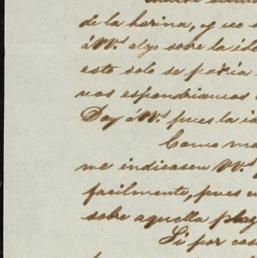 de la harina, y no
á Ws algo sobre la ide
esto solo se podia
nos espondriamos
Doy á Ws pues la id
Como me
me indicasen Ws
facilmente, pues
sobre aquella plaz
Si por cas